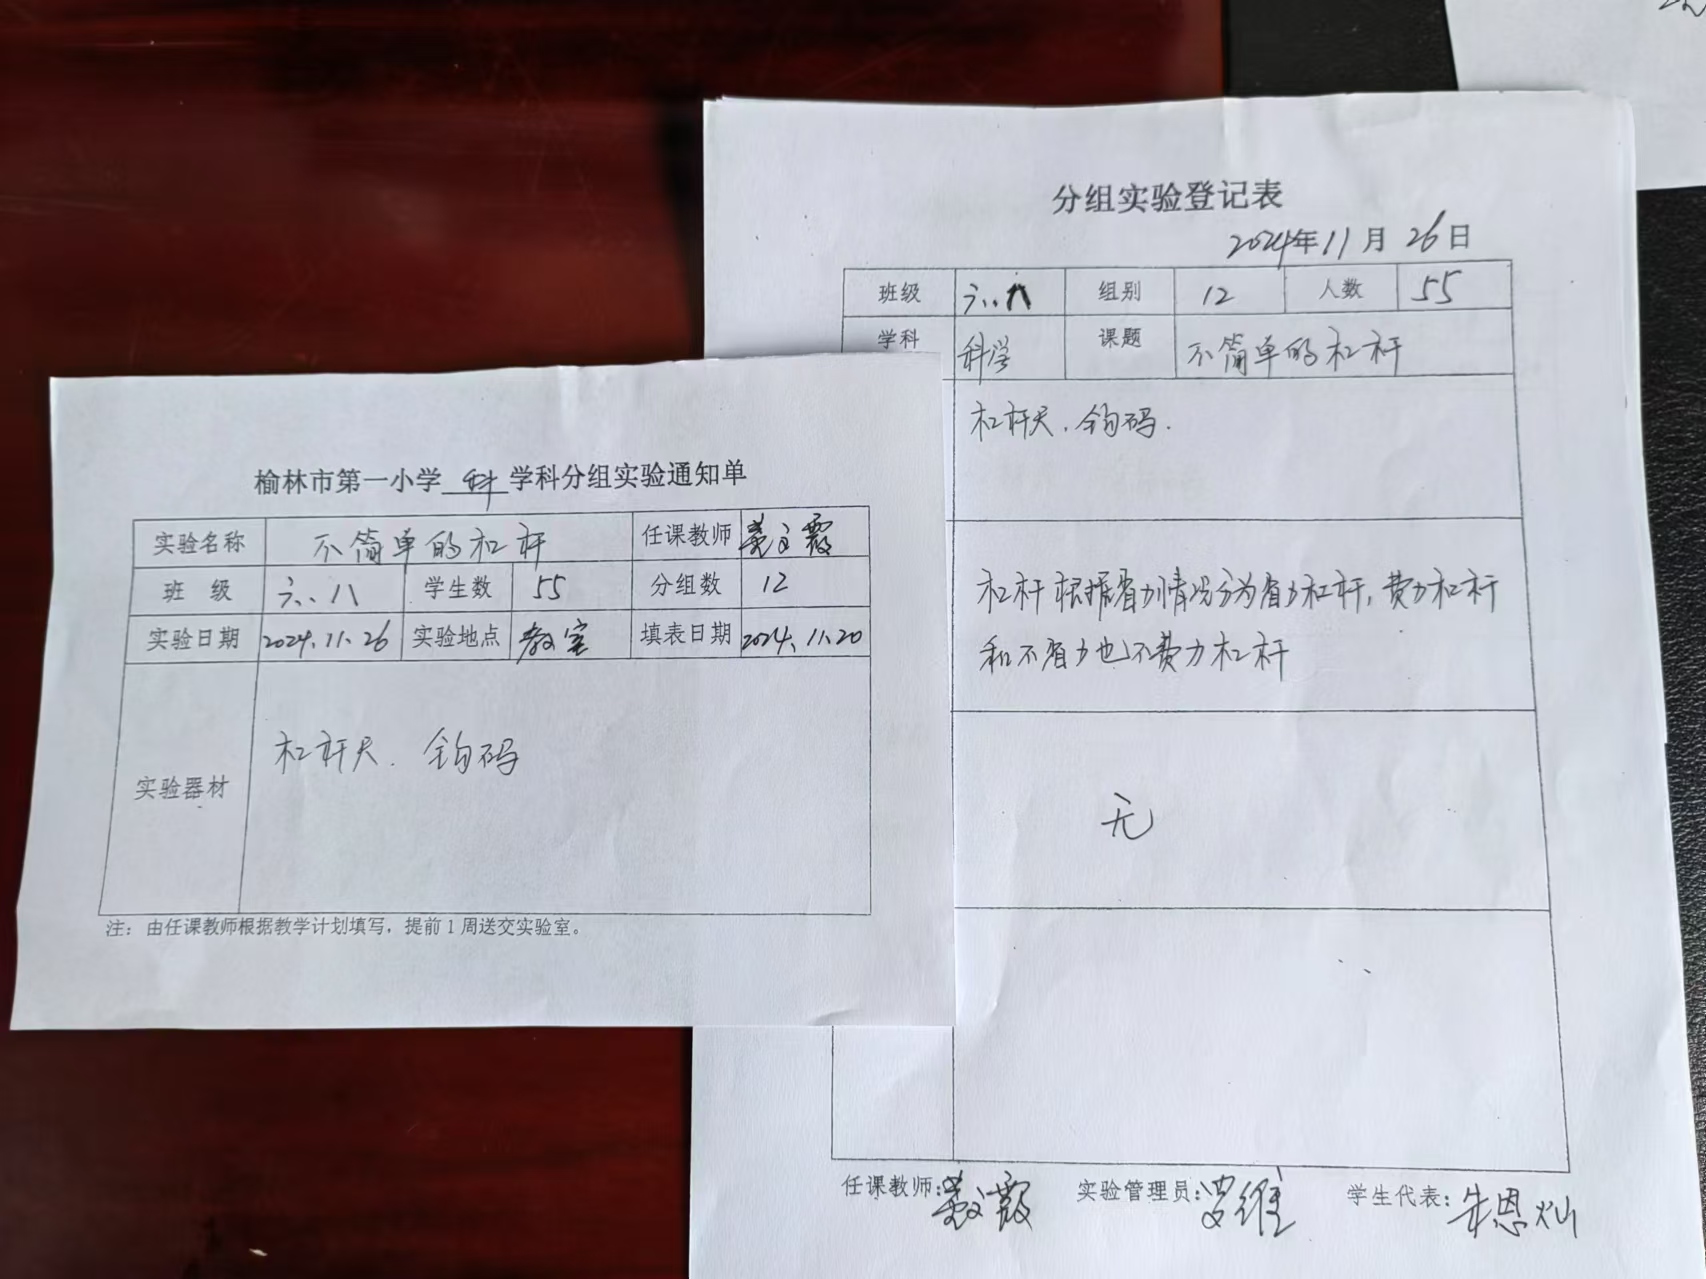 榆林市第一小学 科 学科分组实验通知单
实验名称 不简单的杠杆 任课教师 霞
班 级 六.八 学生数 55 分组数 12
实验日期 2024.11.26 实验地点 教室 填表日期 2024.11.20
实验器材 杠杆尺. 钩码
注: 由任课教师根据教学计划填写, 提前1周送交实验室。
分组实验登记表
2024年11月26日
班级 六.八 组别 12 人数 55
学科 科学 课题 不简单的杠杆
杠杆尺. 钩码.
杠杆根据省力情况分为省力杠杆, 费力杠杆
和不省力也不费力杠杆
无
任课教师: 霞 实验管理员: 罗维 学生代表: 朱恩灿